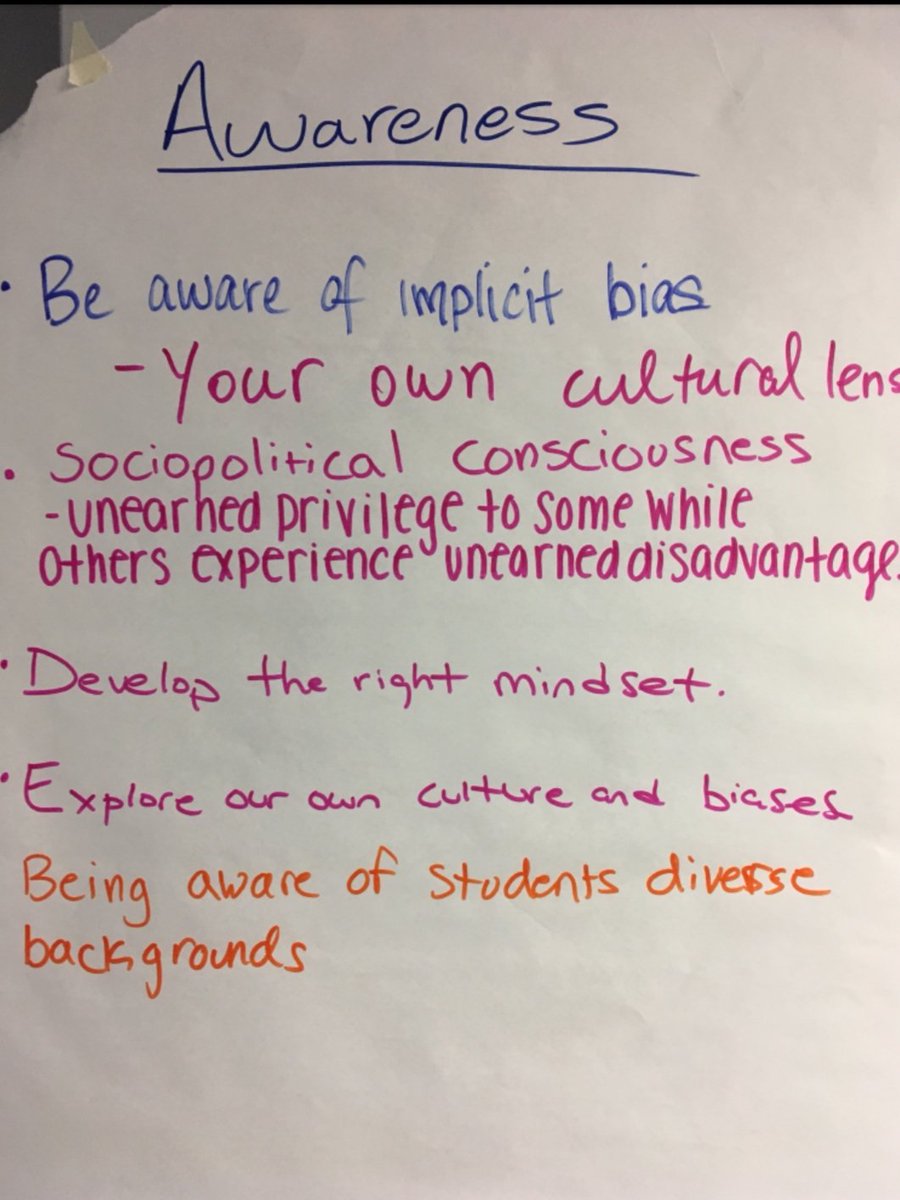 Awareness
· Be aware of implicit bias
- Your own cultural lens
· Sociopolitical consciousness
- unearned privilege to some while
others experience unearned disadvantage.
· Develop the right mindset.
· Explore our own culture and biases
Being aware of students diverse
backgrounds